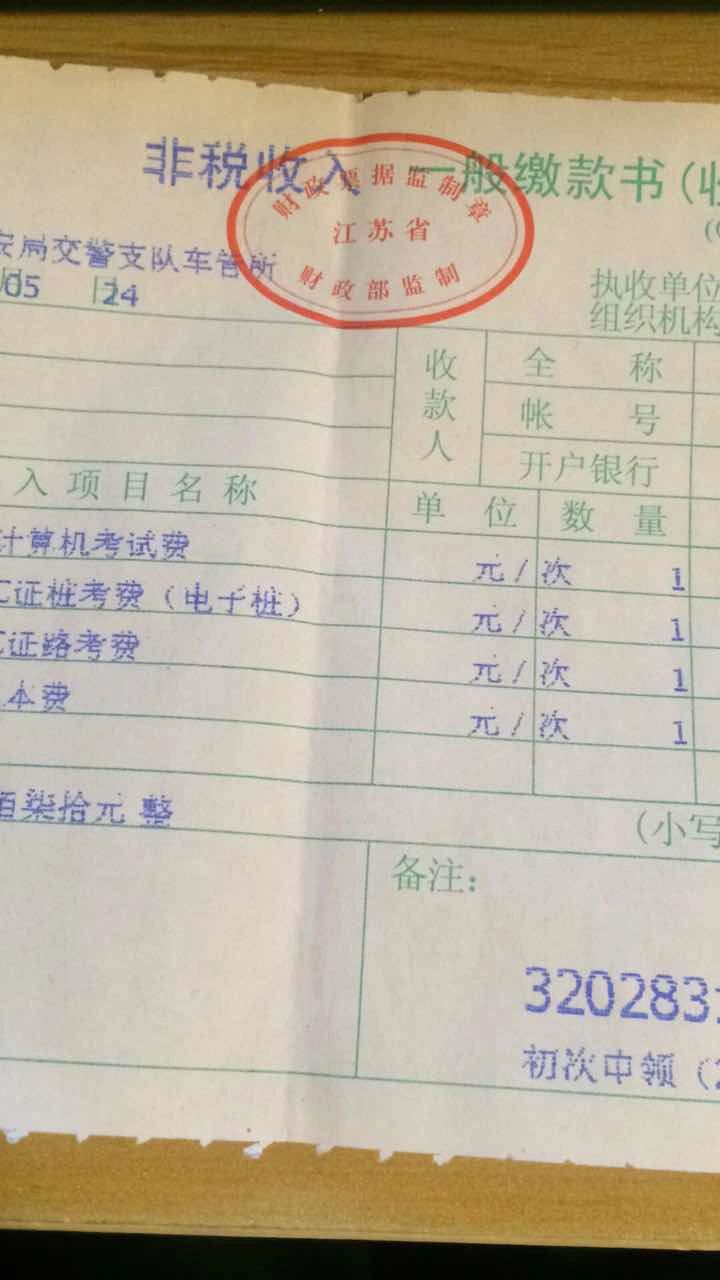 非税收入 一般缴款书(收
财政票据监制章
江苏省
财政部监制
安局交警支队车管所
05 24
执收单位
组织机构
收款人
全 称
帐 号
开户银行
入项目名称 单 位 数 量
计算机考试费 元/次 1
汇证桩考费(电子桩) 元/次 1
汇证路考费 元/次 1
本费 元/次 1
佰柒拾元 整
(小写
备注:
3202831
初次申领(2